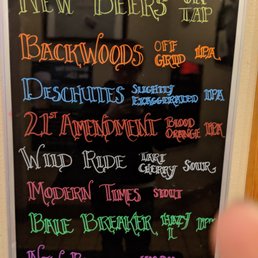 New Beers on Tap
Backwoods Off Grid IPA
Deschutes Slightly Exaggerated IPA
21st Amendment Blood Orange IPA
Wild Ride Tart Cherry Sour
Modern Times Stout
Bale Breaker Hazy L IPA